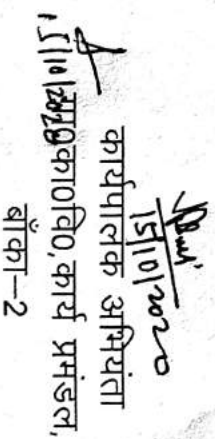 15/10/2020
कार्यपालक अभियंता
15/10/2020
ग्रा०का०वि०, कार्य प्रमंडल,
बाँका-2